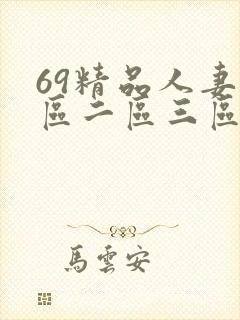 69精品人妻
區二區三區
馬雲安